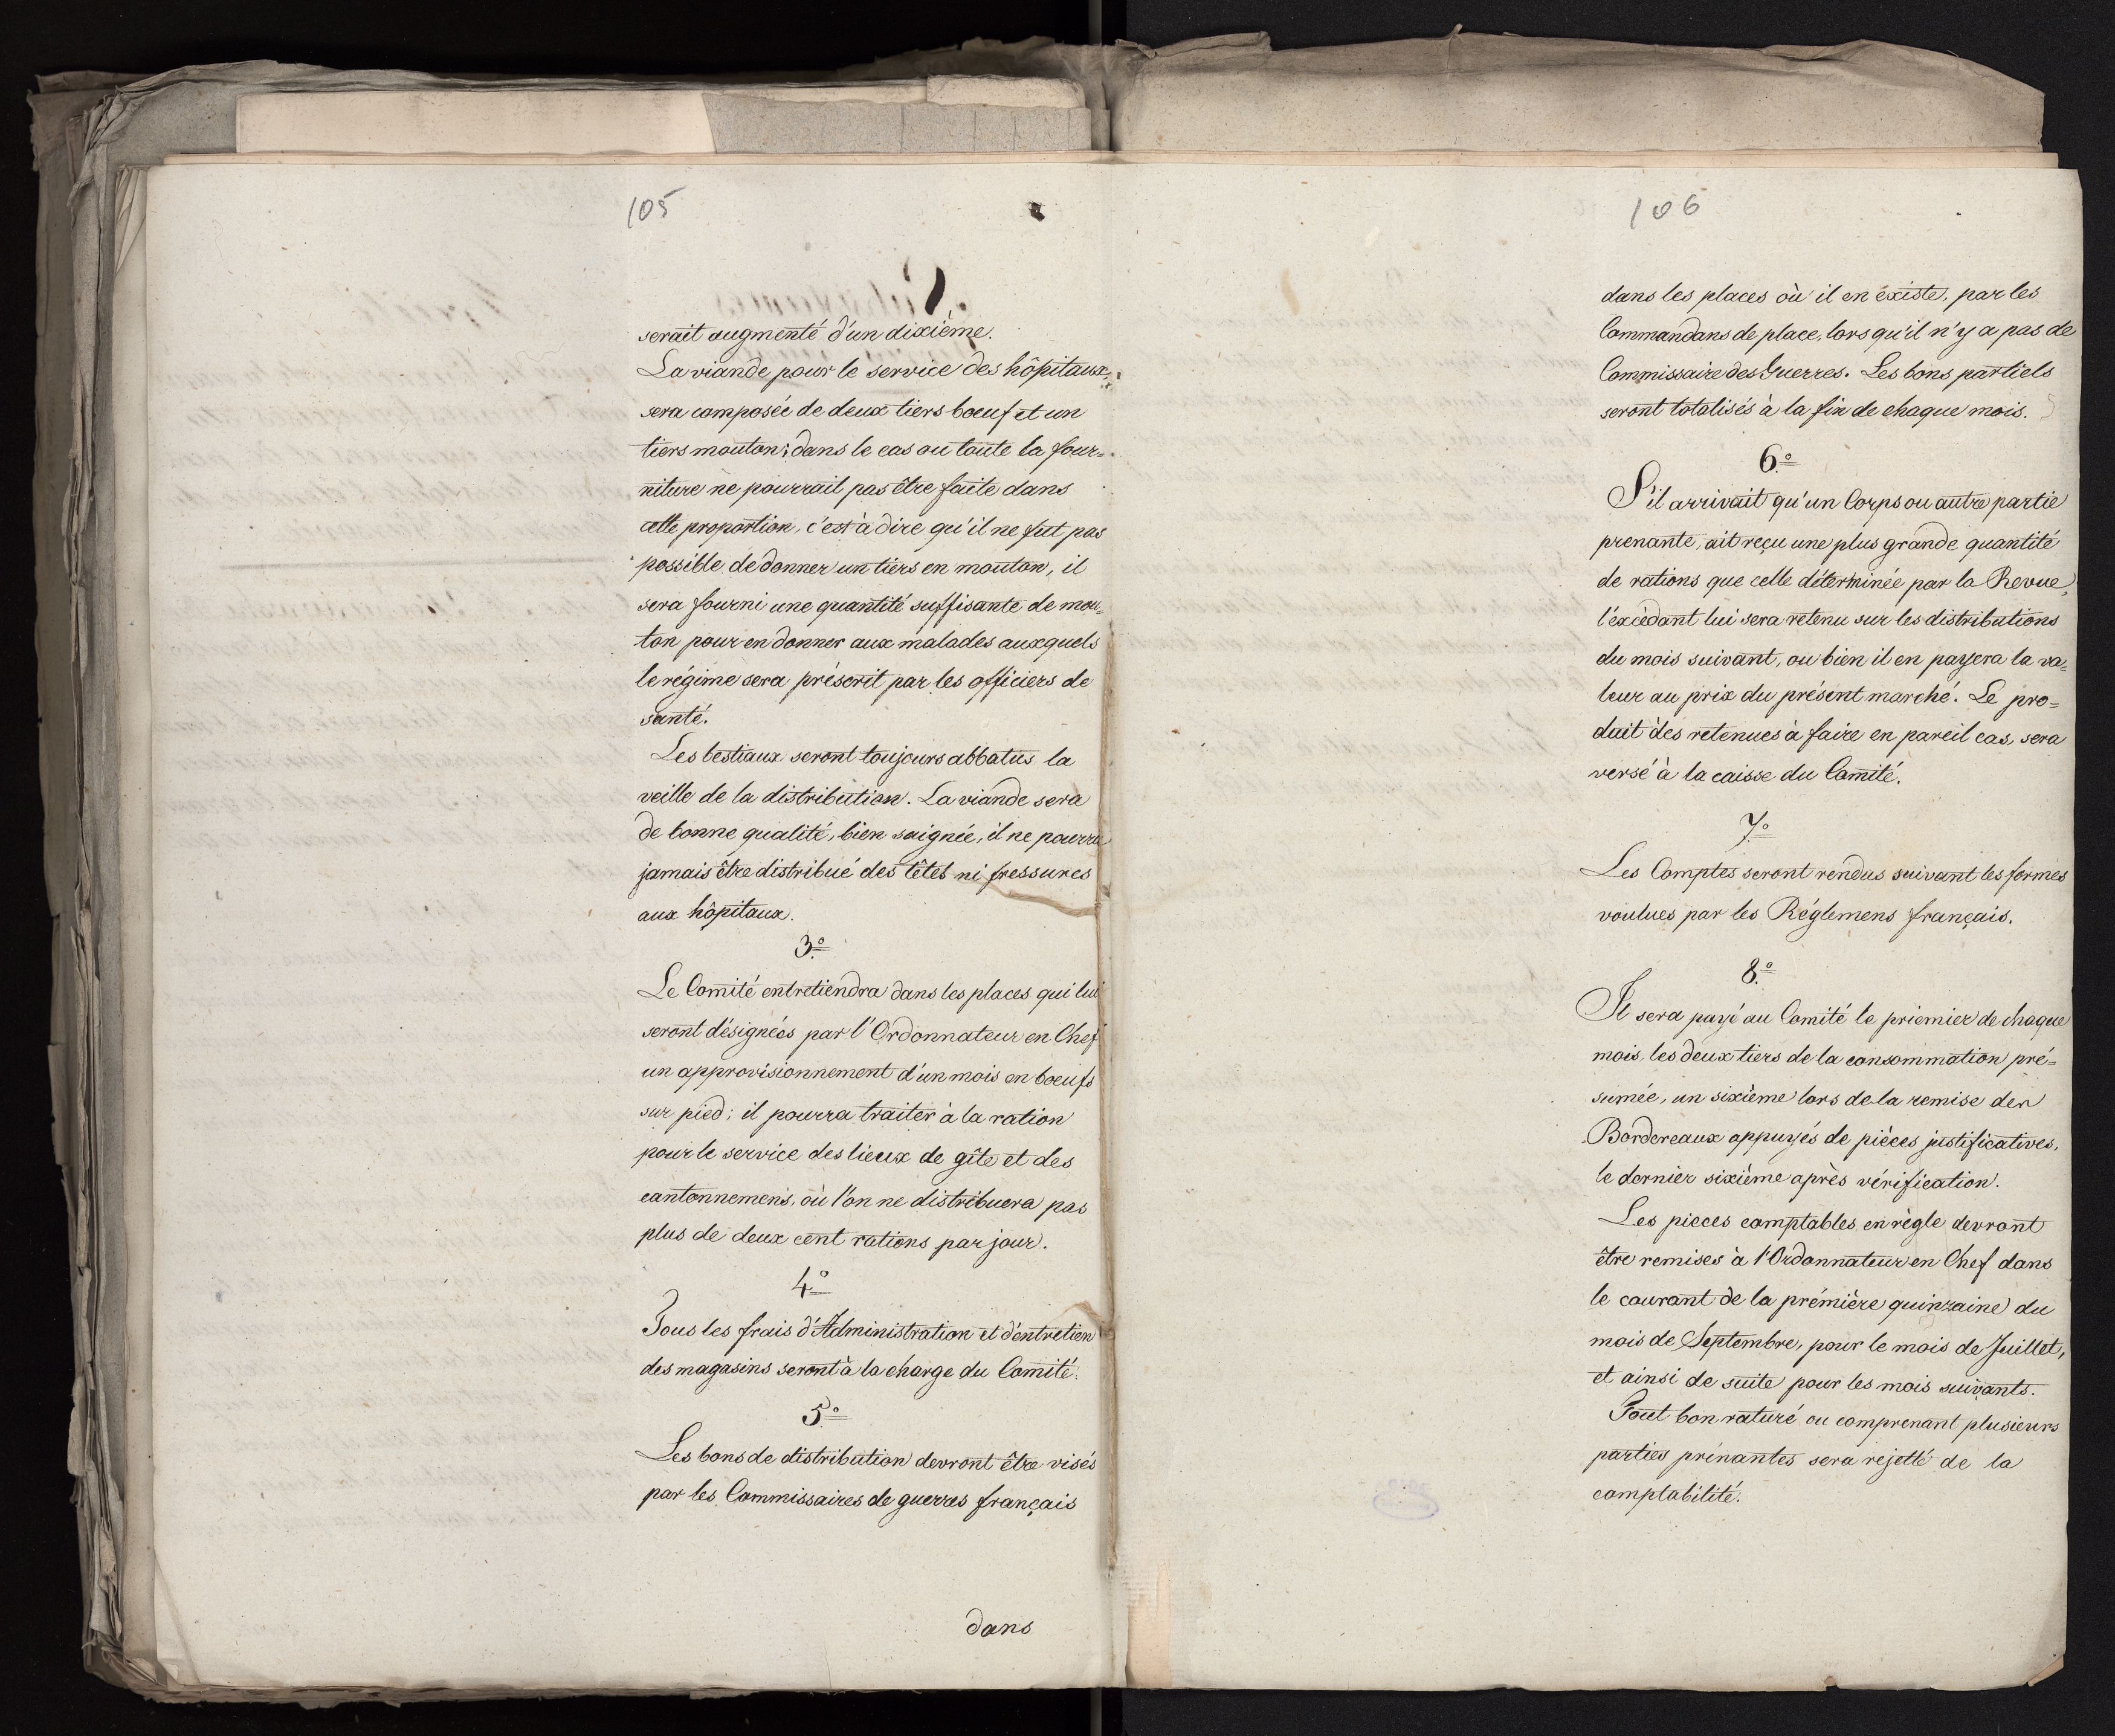 105
serait augmenté d'un dixième.
La viande pour le service des hôpitaux
sera composée de deux tiers boeuf et un
tiers mouton; dans le cas ou toute la four=
niture ne pourrait pas être faite dans
cette proportion, c'est à dire qu'il ne fut pas
possible de donner un tiers en mouton, il
sera fourni une quantité suffisante de mou=
ton pour en donner aux malades auxquels
le régime sera préscrit par les officiers de
santé.
Les bestiaux seront toujours abbatus la
veille de la distribution. La viande sera
de bonne qualité, bien saignée, il ne pourra
jamais être distribué des têtes ni fressures
aux hôpitaux.
3.º
Le Comité entretiendra dans les places qui lui
seront désignées par l'Ordonnateur en Chef
un approvisionnement d'un mois en boeufs
sur pied; il pourra traiter à la ration
pour le service des lieux de gîte et des
cantonnemens, où l'on ne distribuera pas
plus de deux cent rations par jour.
4º
Tous les frais d'Administration et d'entretien
des magasins seront à la charge du Comité.
5.º
Les bons de distribution devront être visés
par les Commissaires de guerres français
dans
106
dans les places où il en éxiste, par les
Commandans de place, lors qu'il n'y a pas de
Commissaire des Guerres. Les bons partiels
seront totalisés à la fin de chaque mois.
6.º
S'il arrivait qu'un Corps ou autre partie
prenante, ait reçu une plus grande quantité
de rations que celle déterminée par la Revue,
l'excédant lui sera retenu sur les distributions
du mois suivant, ou bien il en payera la va=
leur au prix du présent marché. Le pro=
duit dès retenues à faire en pareil cas, sera
versé à la caisse du Comité.
7.º
Les Comptes seront rendus suivant les formes
voulues par les Réglemens français.
8.º
Il sera payé au Comité le priemier de chaque
mois, les deux tiers de la consommation pré=
sumée, un sixième lors de la remise des
Bordereaux appuyés de pièces justificatives,
le dernier sixième après vérification.
Les pieces comptables en règle devront
être remises à l'Ordonnateur en Chef dans
le courant de la prémière quinzaine du
mois de Septembre, pour le mois de Juillet,
et ainsi de suite pour les mois suivants.
Tout bon raturé ou comprenant plusieurs
parties prénantes sera rejetté de la
comptabilité.